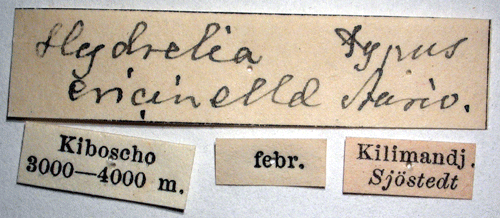 Hydrelia Typus
ericinella Auriv.
Kiboscho
3000—4000 m.
febr.
Kilimandj.
Sjöstedt